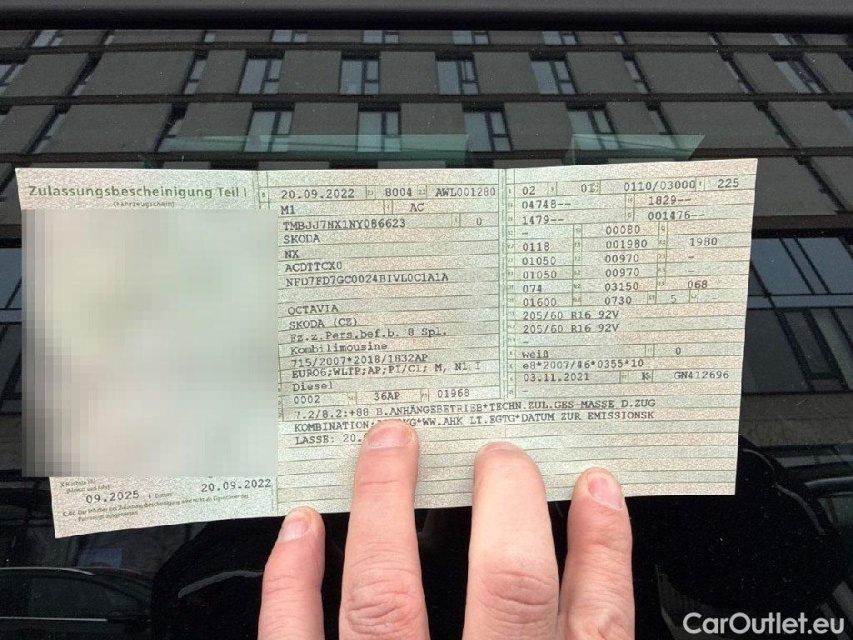 Zulassungsbescheinigung Teil I
(Fahrzeugschein)
09.2025 20.09.2022
20.09.2022 8004 AWL001280
M1 AC
TMBJJ7NX1NY086623 0
SKODA
NX
ACDTTCX0
NFD7FD7GC0024BIVL0C1A1A
OCTAVIA
SKODA (CZ)
Fz.z.Pers.bef.b. 8 Spl.
Kombilimousine
715/2007*2018/1832AP
EURO6;WLTP;AP;PI/CI; M, N1 I
Diesel
0002 36AP 01968
02 01 0110/03000 225
04748-- 1829--
1479-- 001476--
- 00080
0118 001980 1980
01050 00970 -
01050 00970 -
074 03150 068
01600 0730 5
205/60 R16 92V
205/60 R16 92V
-
weiß 0
e8*2007/46*0355*10
03.11.2021 K GN412696
7.2/8.2:+88 B.ANHÄNGEBETRIEB*TECHN.ZUL.GES-MASSE D.ZUG
KOMBINATION: KG*WW.AHK LT.EGTG*DATUM ZUR EMISSIONSK
LASSE: 20.
CarOutlet.eu